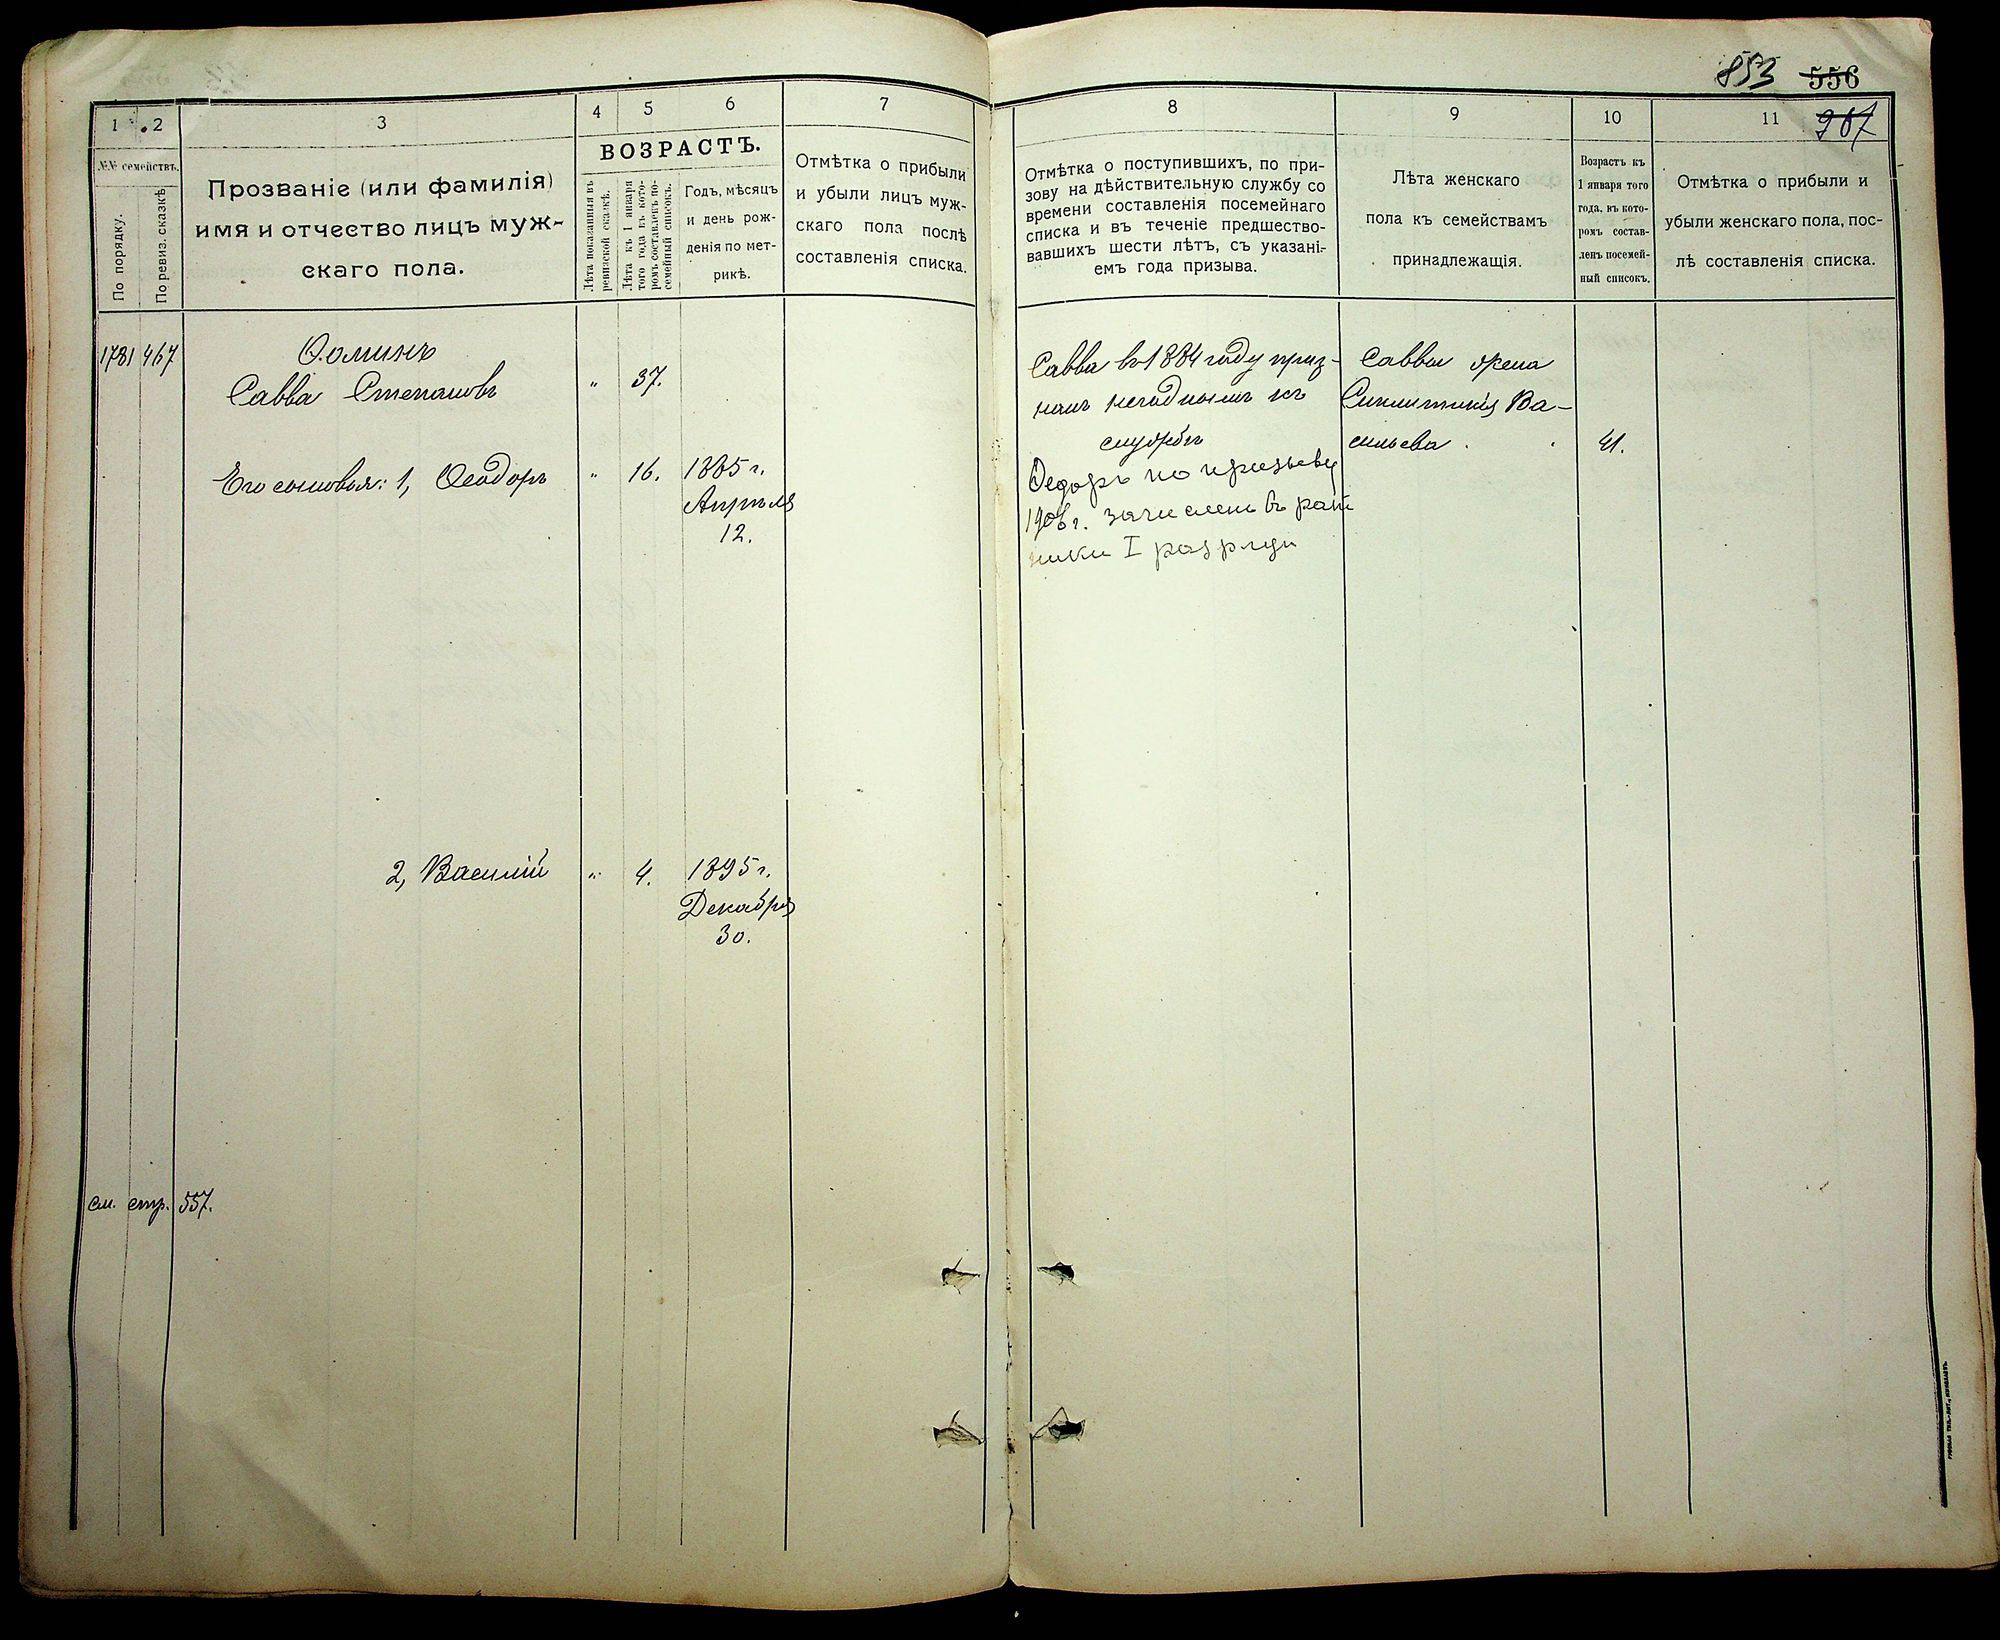 853 556
967
1 2 3 4 5 6 7
№№ семействъ.
По порядку.
По ревиз. сказкѣ
Прозваніе (или фамилія)
имя и отчество лицъ муж-
скаго пола.
ВОЗРАСТЪ.
Лѣта показанныя въ
ревизской сказкѣ.
Лѣта къ 1 января
того года въ кото-
ромъ составленъ по-
семейный списокъ.
Годъ, мѣсяцъ
и день рож-
денія по мет-
рикѣ.
Отмѣтка о прибыли
и убыли лицъ муж-
скаго пола послѣ
составленія списка.
8 9 10 11
Отмѣтка о поступившихъ, по при-
зову на дѣйствительную службу со
времени составленія посемейнаго
списка и въ теченіе предшество-
вавшихъ шести лѣтъ, съ указані-
емъ года призыва.
Лѣта женскаго
пола къ семействамъ
принадлежащія.
Возрастъ къ
1 января того
года, въ кото-
ромъ состав-
ленъ посемей-
ный списокъ.
Отмѣтка о прибыли и
убыли женскаго пола, пос-
лѣ составленія списка.
1781 467 Ѳоминъ
Савва Степановъ " 37.
Его сыновья: 1, Ѳеодоръ " 16. 1885 г.
Апрѣля
12.
2, Василій " 4. 1895 г.
Декабря
30.
см. стр. 557.
Савва въ 1884 году приз-
нанъ негоднымъ къ
службѣ
Федоръ по призыву
1906 г. зачисленъ въ рат
ники I разряда
Саввы жена
Синклитикія Ва-
сильева . 41.